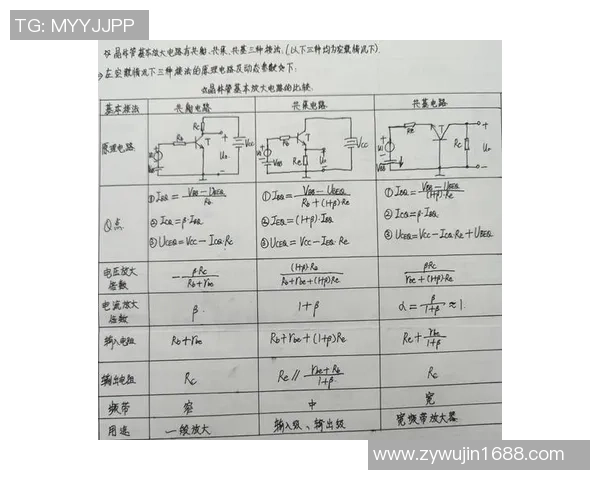 TG: MYYJJPP
☆晶体管基本放大电路有共射、共集、共基三种接法. (以下三种均为空载情况下).
→在空载情况下三种接法的原理电路及动态参数如下:
☆晶体管基本放大电路的比较.
基本接法 共射电路 共集电路 共基电路
原理电路
Rb Rc T + Uo - VCC ui VBB
Rb T Re + Uo - VCC ui VBB
Re T Rc + Uo - ui VBB
Q点
① IBQ = (VBB-UBEQ)/Rb
② ICQ = β·IBQ
③ UCEQ = VCC - ICQ·Rc
① IBQ = (VBB-UBEQ)/(Rb+(1+β)Re)
② IEQ = (1+β)·IBQ
③ UCEQ = VCC - IEQ·Re
① IBQ = (VBB-UBEQ)/((1+β)Re)
② ICQ = β·IBQ
③ UCEQ = VCC - ICQ·Rc + UBEQ
电压放大倍数 -βRc/(Rb+rbe) (1+β)Re/(Rb+rbe+(1+β)Re) βRc/(rbe+(1+β)Re)
电流放大倍数 β 1+β α = β/(1+β) ≈ 1
输入电阻 Rb+rbe Rb+rbe+(1+β)Re Re+rbe/(1+β)
输出电阻 Rc Re∥(rbe+Rb)/(1+β) Rc
频带 窄 中 宽
用途 一般放大 输入级、输出级 宽频带放大器
www.zywujin1688.com